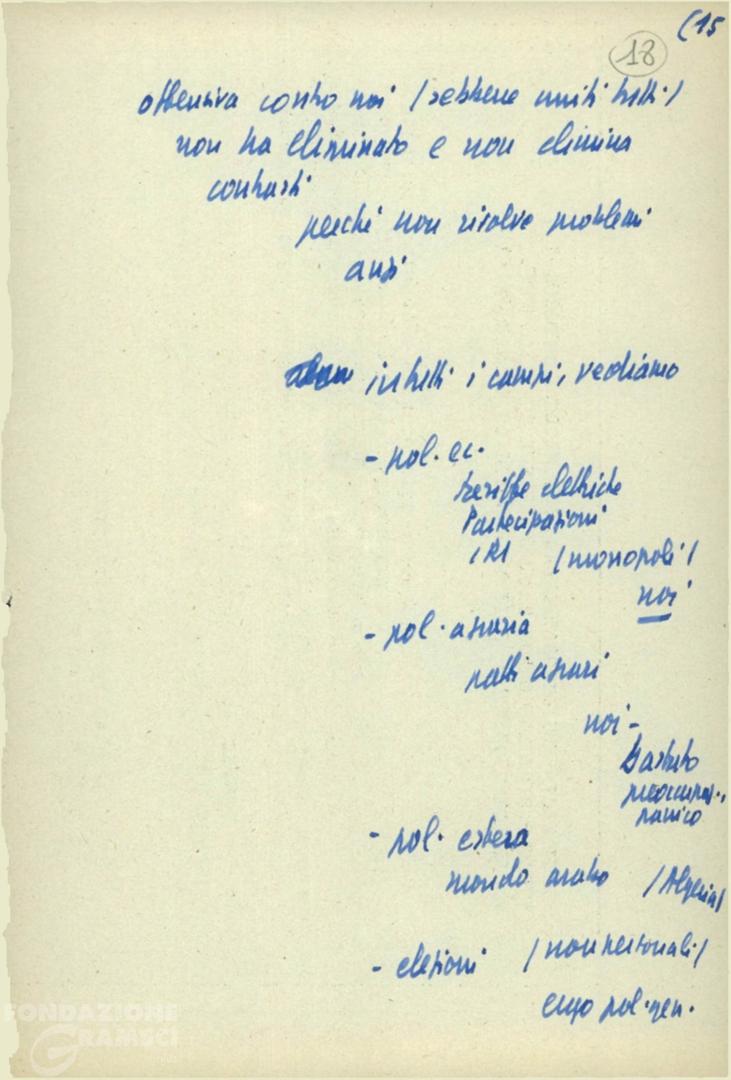 (15
18
offensiva contro noi (sebbene uniti tutti)
non ha eliminato e non elimina
contrasti
perché non risolve problemi
anzi
in tutti i campi, vediamo
- pol. ec.
tariffe elettriche
Partecipazioni
IRI (monopoli)
noi
- pol. agraria
patti agrari
noi -
preoccupaz..
panico
- pol. estera
mondo arabo (Algeria)
- elezioni (non personali)
ergo pol. gen.
FONDAZIONE
GRAMSCI